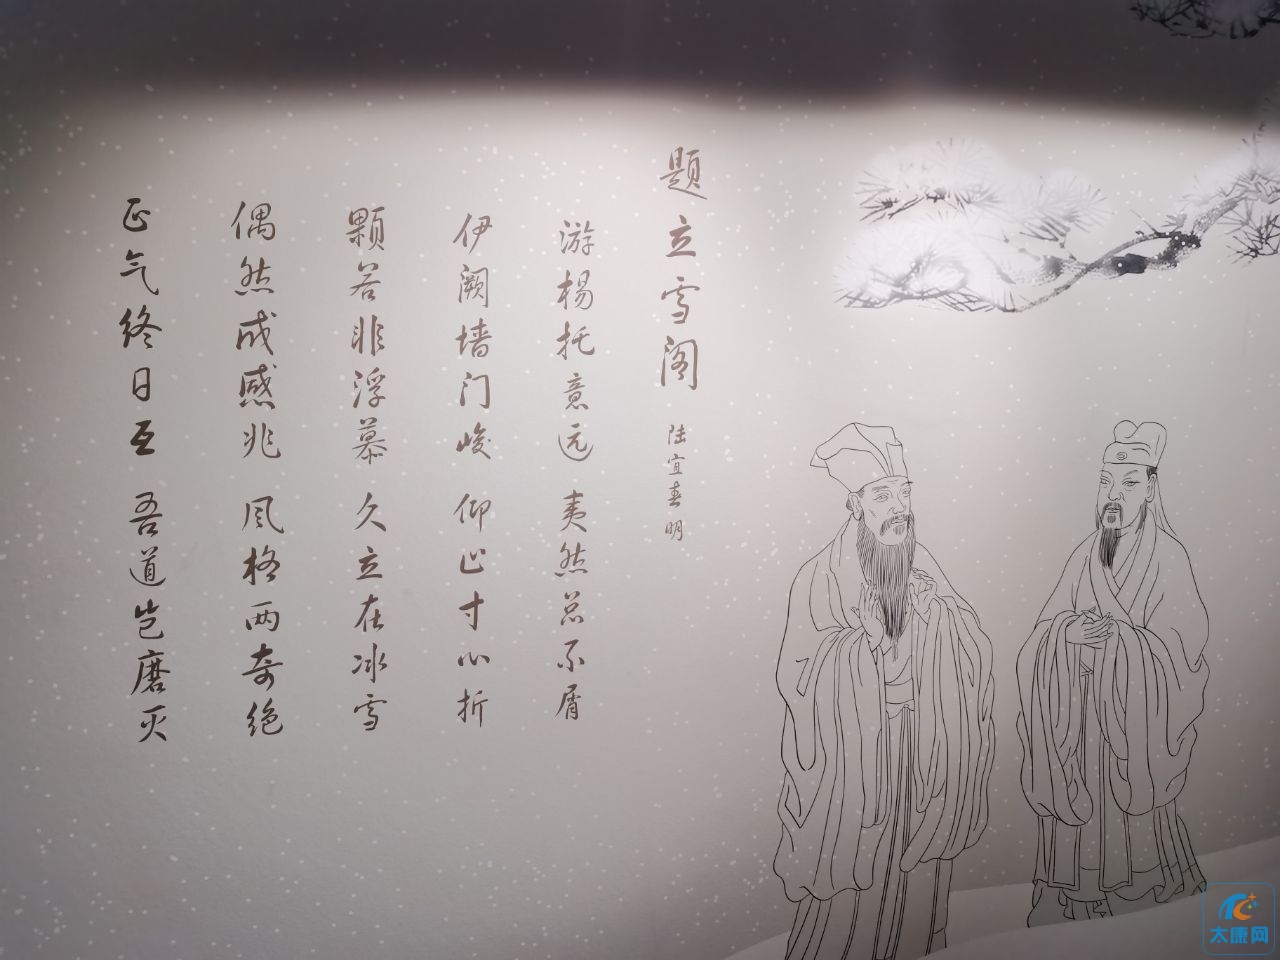 题立雪阁
陆宜春 明
游杨托意远 夷然总不屑
伊阙墙门峻 仰止寸心折
颗若非浮慕 久立在冰雪
偶然成感兆 风格两奇绝
正气终日互 吾道岂磨灭
太康网